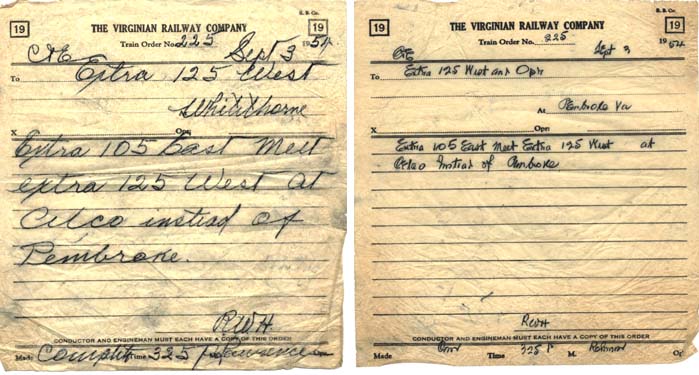 B. B. Co.
19 THE VIRGINIAN RAILWAY COMPANY 19
Train Order No. 225 Sept 3 1954
C&E
To Extra 125 West
Whitethorne
X Opr.
Extra 105 East Meet
extra 125 West at
Celco instead of
Pembroke.
RWH
CONDUCTOR AND ENGINEMAN MUST EACH HAVE A COPY OF THIS ORDER
Made Complete Time 325 P Lawrence Opr.
B. B. Co.
19 THE VIRGINIAN RAILWAY COMPANY 19
Train Order No. 225 Sept 3 1954
C&E
To Extra 125 West and Opr
At Pembroke Va
X Opr.
Extra 105 East Meet Extra 125 West at
Celco Instead of Pembroke
RWH
CONDUCTOR AND ENGINEMAN MUST EACH HAVE A COPY OF THIS ORDER
Made Com Time 325 P M. Opr